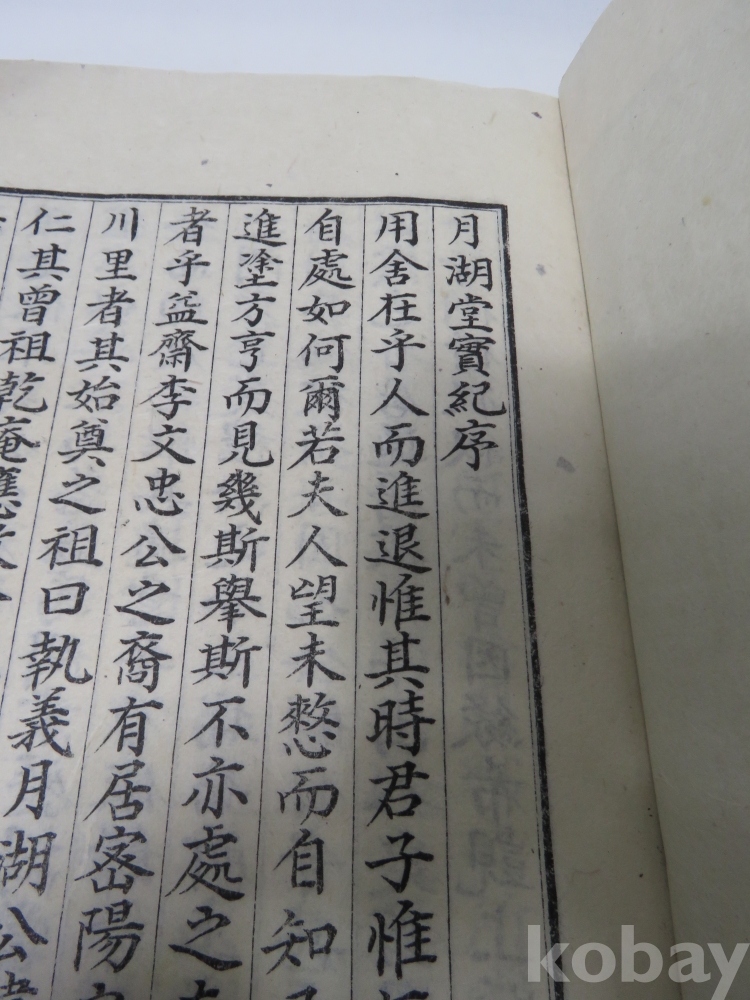 月湖堂實紀序
用舍在乎人而進退惟其時君子惟
自處如何爾若夫人望未愸而自知
進塗方亨而見幾斯擧斯不亦處之
者乎益齋李文忠公之裔有居密陽
川里者其始奠之祖曰執義月湖公
仁其曾祖乾庵應
kobay